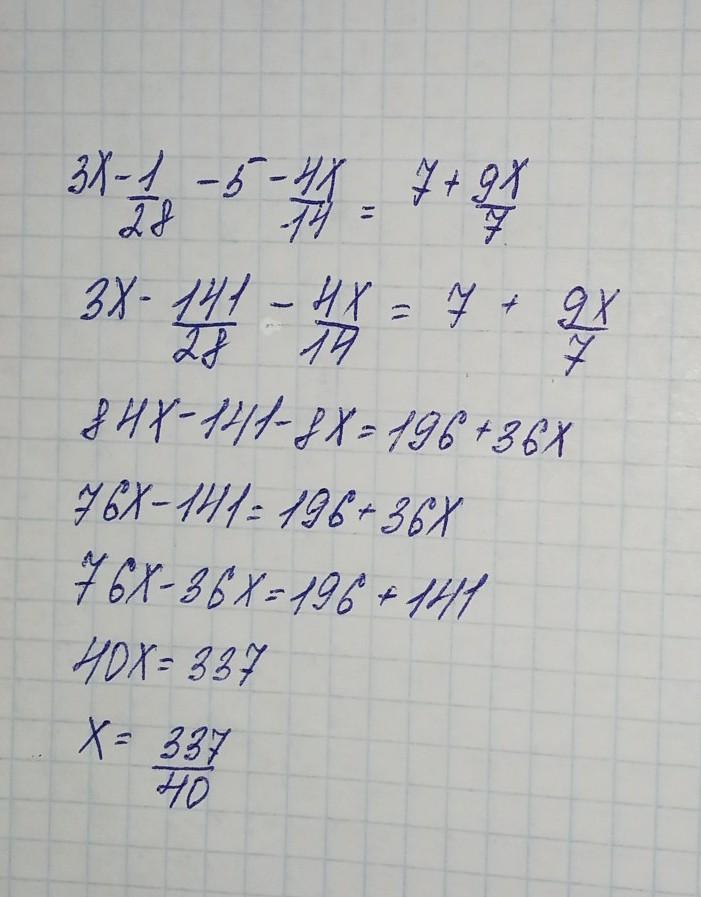 3x - 1/28 - 5 - 4x/14 = 7 + 9x/7
3x - 141/28 - 4x/14 = 7 + 9x/7
84x - 141 - 8x = 196 + 36x
76x - 141 = 196 + 36x
76x - 36x = 196 + 141
40x = 337
x = 337/40